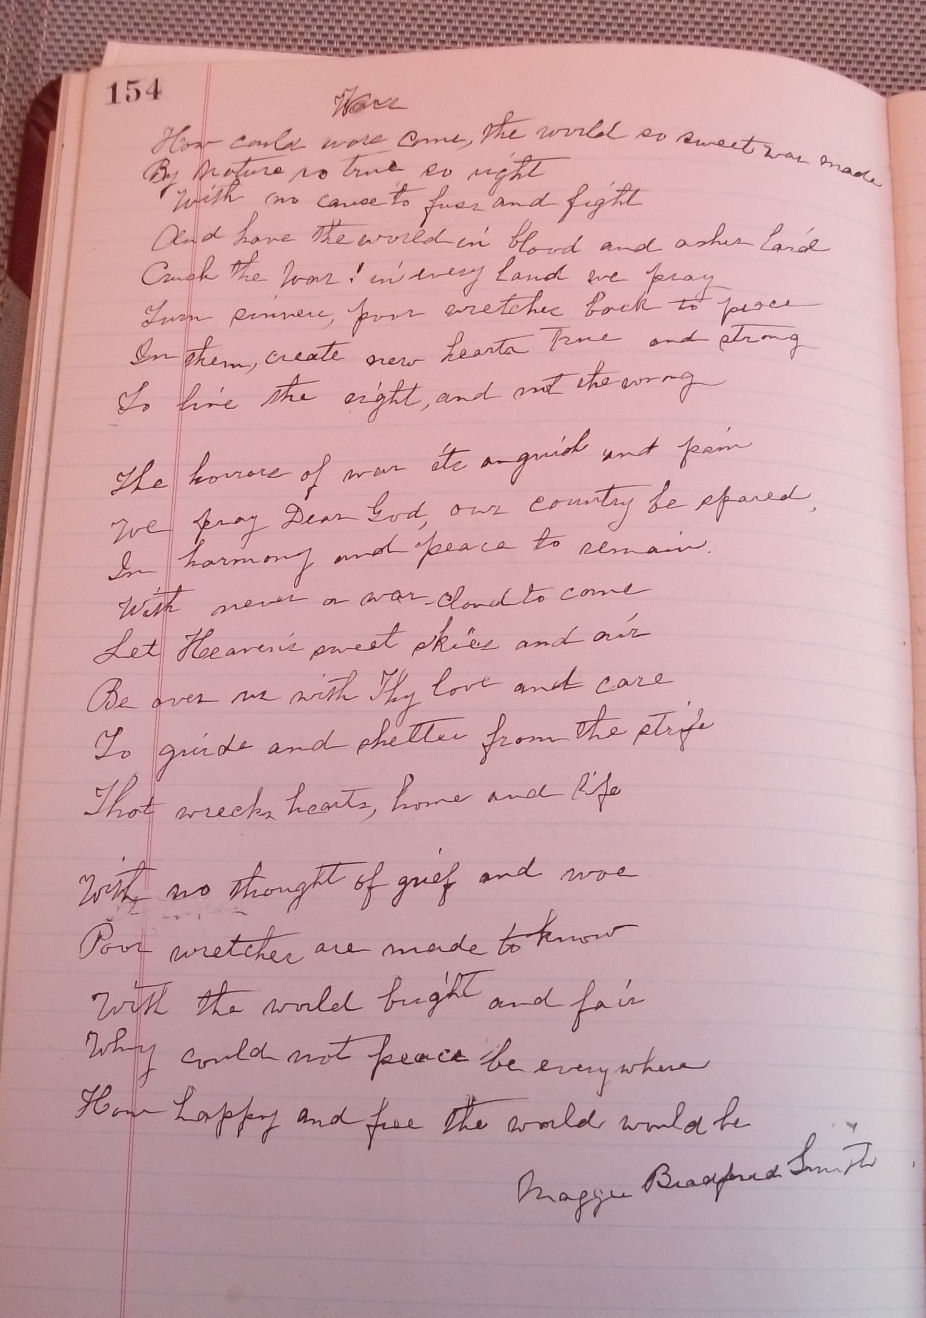 154
War
How could wars come, the world so sweet was made
By Nature so true so right
With no cause to fuss and fight
And have the world in blood and ashes laid
Crush the War! in every land we pray
Turn sinners, poor wretches back to peace
In them, create new hearts true and strong
To live the right, and not the wrong
The horrors of war its anguish and pain
We pray Dear God, our country be spared,
In harmony and peace to remain.
With never a war-cloud to come
Let Heaven's sweet skies and air
Be over us with Thy love and care
To guide and shelter from the strife
That wrecks hearts, home and life
With no thought of grief and woe
Poor wretches are made to know
With the world bright and fair
Why could not peace be everywhere
How happy and free the world would be
Maggie Bradford Smith